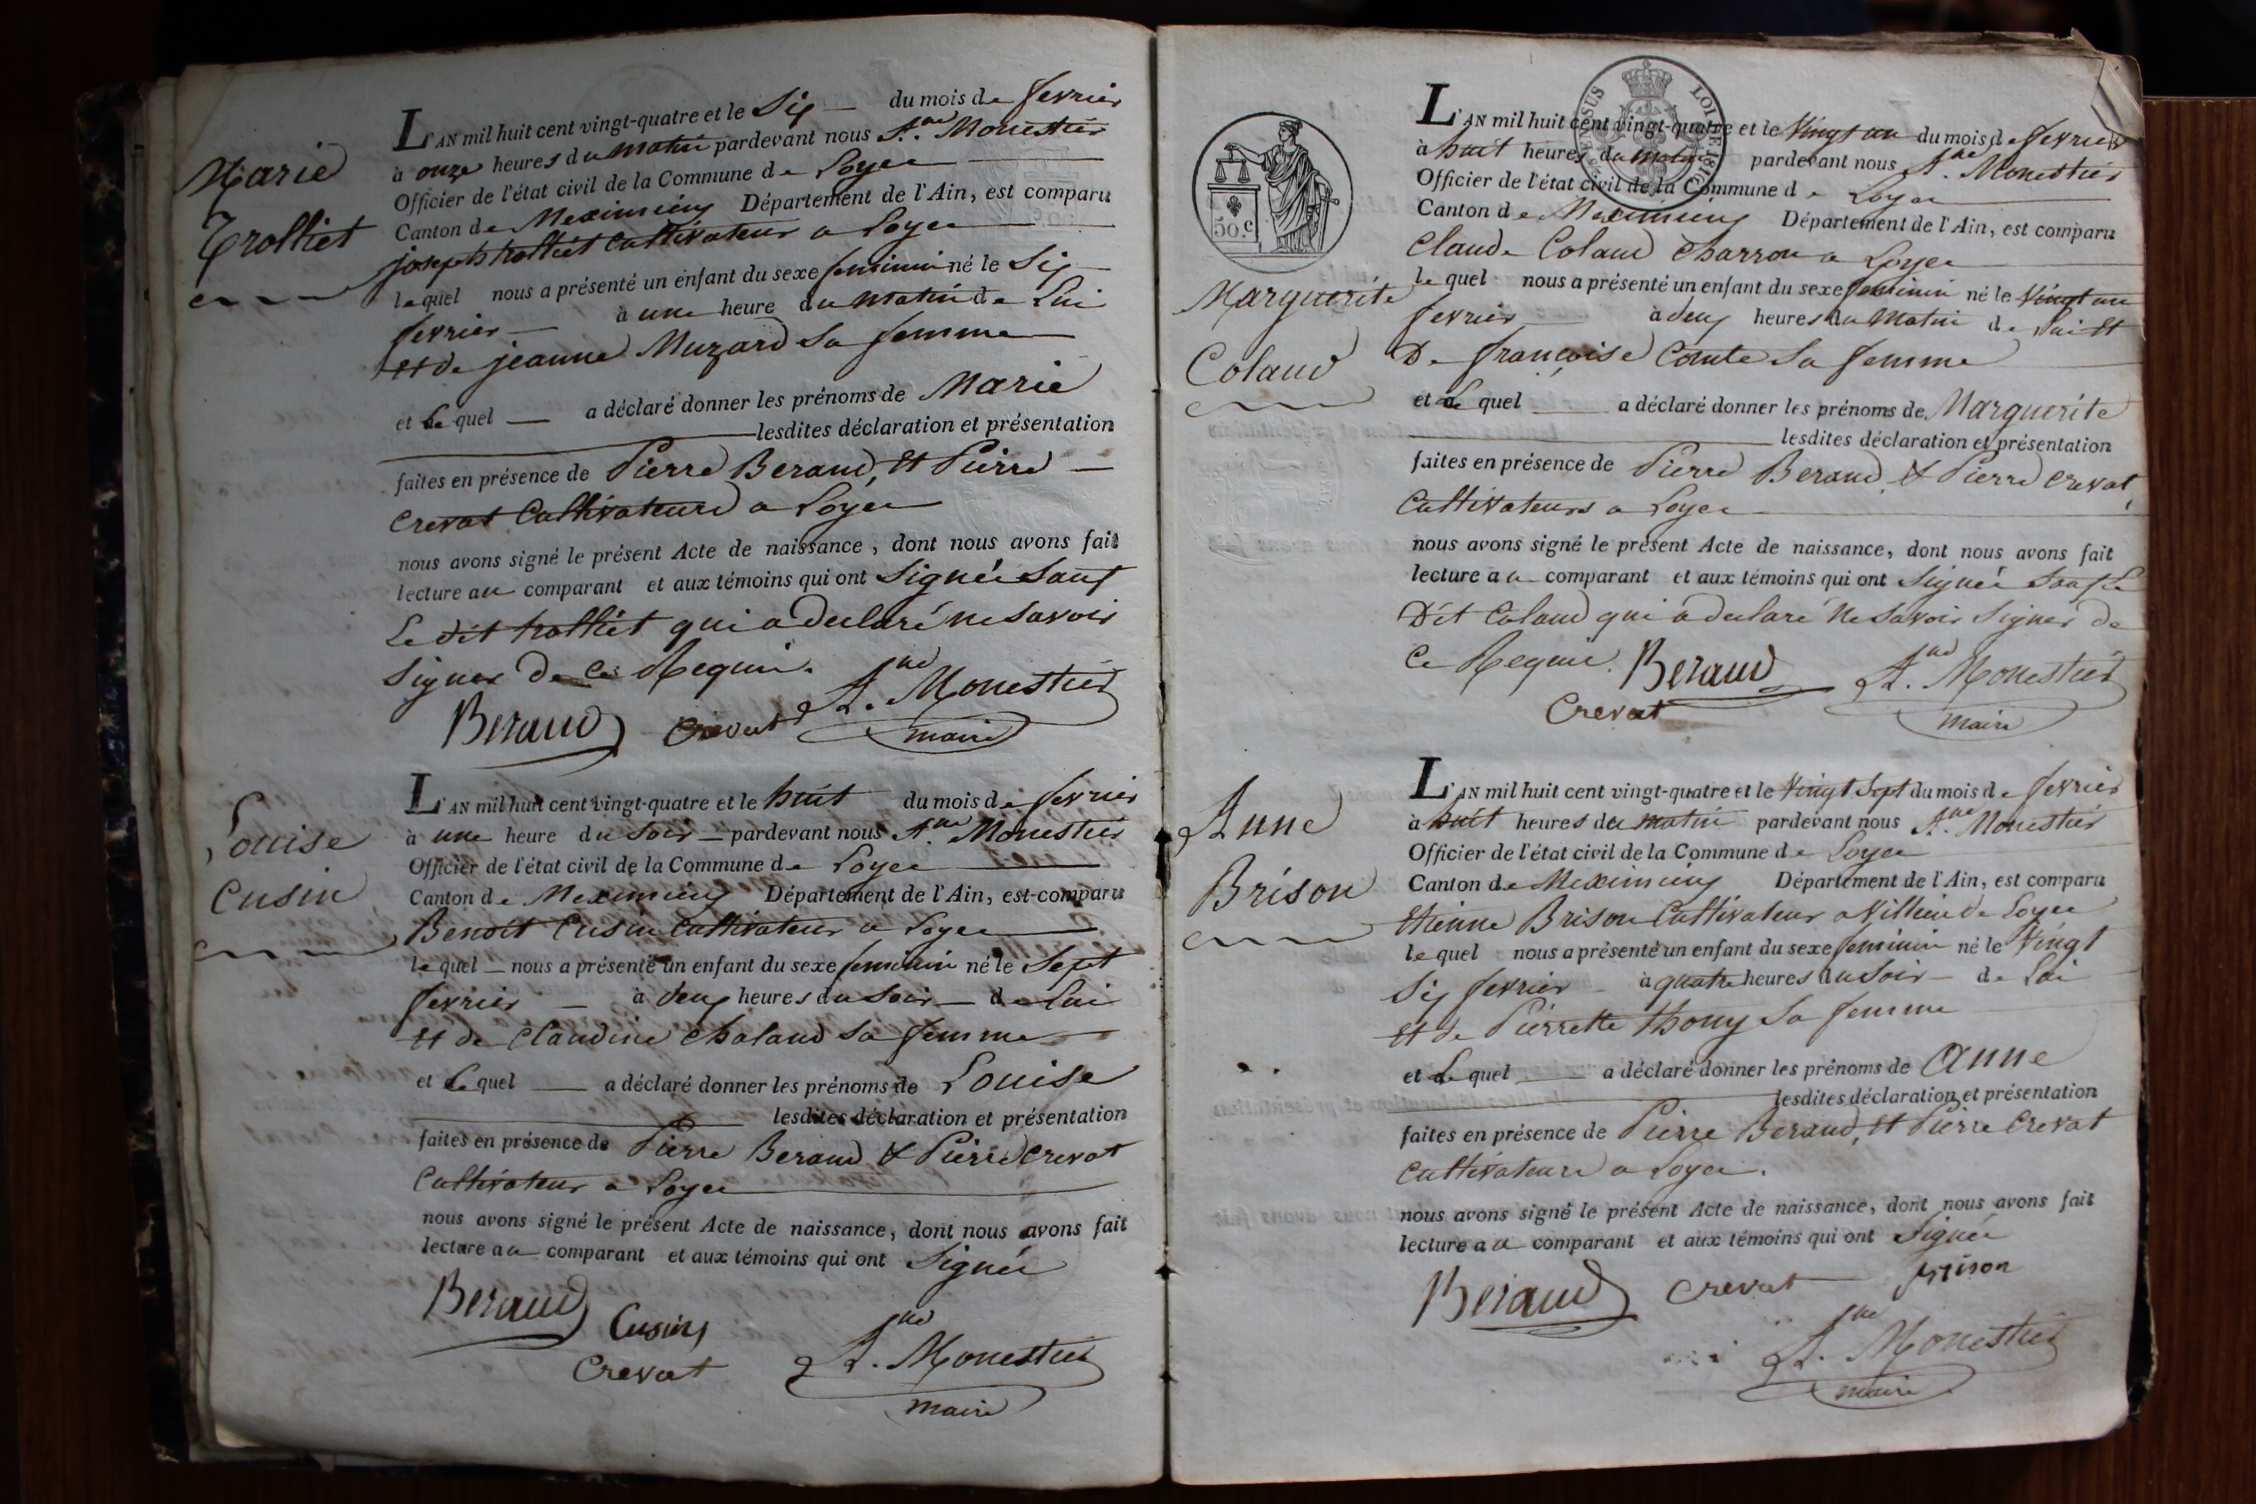 Marie
Trolliet
L'AN mil huit cent vingt-quatre et le Six du mois de fevrier
à onze heures du matin pardevant nous A.ne Monestier
Officier de l'état civil de la Commune de Loyes
Canton de Meximieux Département de l'Ain, est comparu
joseph trolliet cultivateur a Loyes
lequel nous a présenté un enfant du sexe feminin né le Six
fevrier à une heure du matin de Lui
et de jeanne Muzard sa femme
et Le quel a déclaré donner les prénoms de Marie
lesdites déclaration et présentation
faites en présence de Pierre Beraud, et Pierre
Crevat Cultivateurs a Loyes
nous avons signé le présent Acte de naissance, dont nous avons fait
lecture au comparant et aux témoins qui ont Signée Sauf
Le dit trolliet qui a declaré ne savoir
signer de ce Requis.
A.ne Monestier
Beraud Crevat maire
Louise
Cusin
L'AN mil huit cent vingt-quatre et le huit du mois de fevrier
à une heure du soir pardevant nous A.ne Monestier
Officier de l'état civil de la Commune de Loyes
Canton de Meximieux Département de l'Ain, est comparu
Benoit Cusin cultivateur a Loyes
lequel nous a présenté un enfant du sexe feminin né le Sept
fevrier à deux heures du soir de Lui
et de Claudine Chaland sa femme
et Le quel a déclaré donner les prénoms de Louise
lesdites déclaration et présentation
faites en présence de Pierre Beraud & Pierre Crevat
Cultivateurs a Loyes
nous avons signé le présent Acte de naissance, dont nous avons fait
lecture au comparant et aux témoins qui ont Signée
Beraud Cusin
Crevat A.ne Monestier
maire
50.c
LOI DE 1816
Marguerite
Colaud
L'AN mil huit cent vingt-quatre et le Vingt un du mois de fevrier
à huit heures du matin pardevant nous A.ne Monestier
Officier de l'état civil de la Commune de Loyes
Canton de Meximieux Département de l'Ain, est comparu
Claude Colaud Charron a Loyes
le quel nous a présenté un enfant du sexe feminin né le Vingt un
fevrier à deux heures du Matin de Lui et
De françoise Comte sa femme
et Le quel a déclaré donner les prénoms de Marguerite
lesdites déclaration et présentation
faites en présence de Pierre Beraud & Pierre Crevat,
Cultivateurs a Loyes
nous avons signé le présent Acte de naissance, dont nous avons fait
lecture au comparant et aux témoins qui ont Signée Sauf Le
Dit Colaud qui a declaré ne savoir signer de
Ce Requis. Beraud A.ne Monestier
Crevat maire
Anne
Brison
L'AN mil huit cent vingt-quatre et le Vingt Sept du mois de fevrier
à huit heures du matin pardevant nous A.ne Monestier
Officier de l'état civil de la Commune de Loyes
Canton de Meximieux Département de l'Ain, est comparu
Etienne Brison Cultivateur a Villieu de Loyes
le quel nous a présenté un enfant du sexe feminin né le Vingt
Six fevrier à quatre heures du Soir de Lui
et de Pierrette thony sa femme
et Le quel a déclaré donner les prénoms de Anne
lesdites déclaration et présentation
faites en présence de Pierre Beraud, et Pierre Crevat
Cultivateurs a Loyes.
nous avons signé le présent Acte de naissance, dont nous avons fait
lecture au comparant et aux témoins qui ont Signée
Beraud Crevat Brison
A.ne Monestier
maire